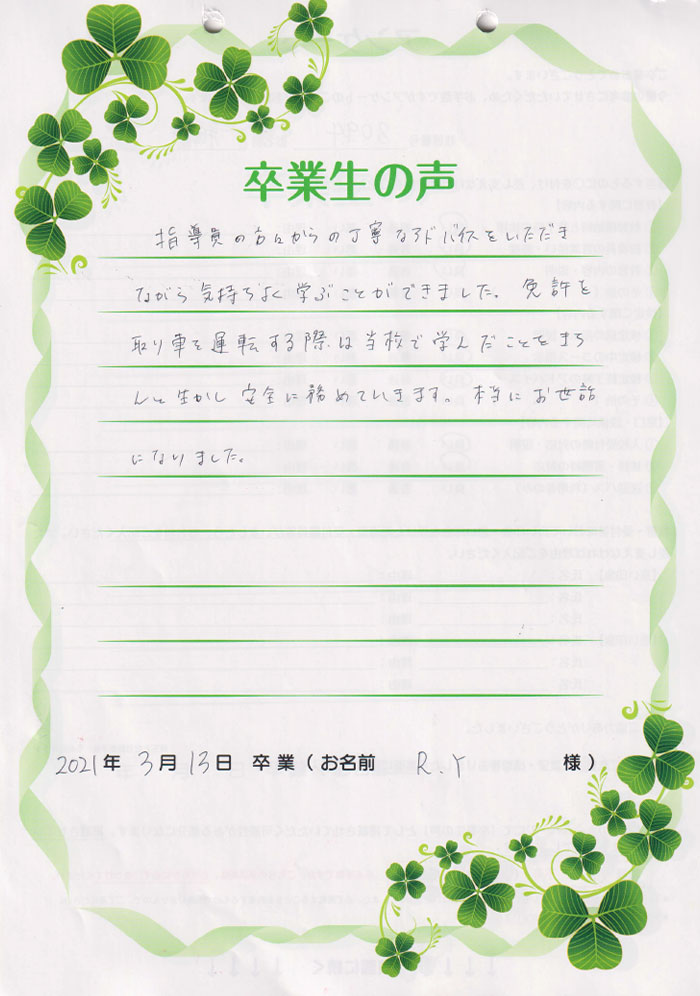 卒業生の声
指導員の方々からの丁寧なアドバイスをいただき
ながら気持ちよく学ぶことができました。免許を
取り車を運転する際は当校で学んだことをきち
んと生かし安全に務めていきます。本当にお世話
になりました。
2021年 3月 13日 卒業(お名前 R.Y 様)